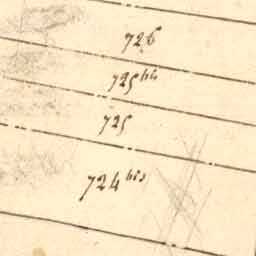 726
725 bis
725
724 bis